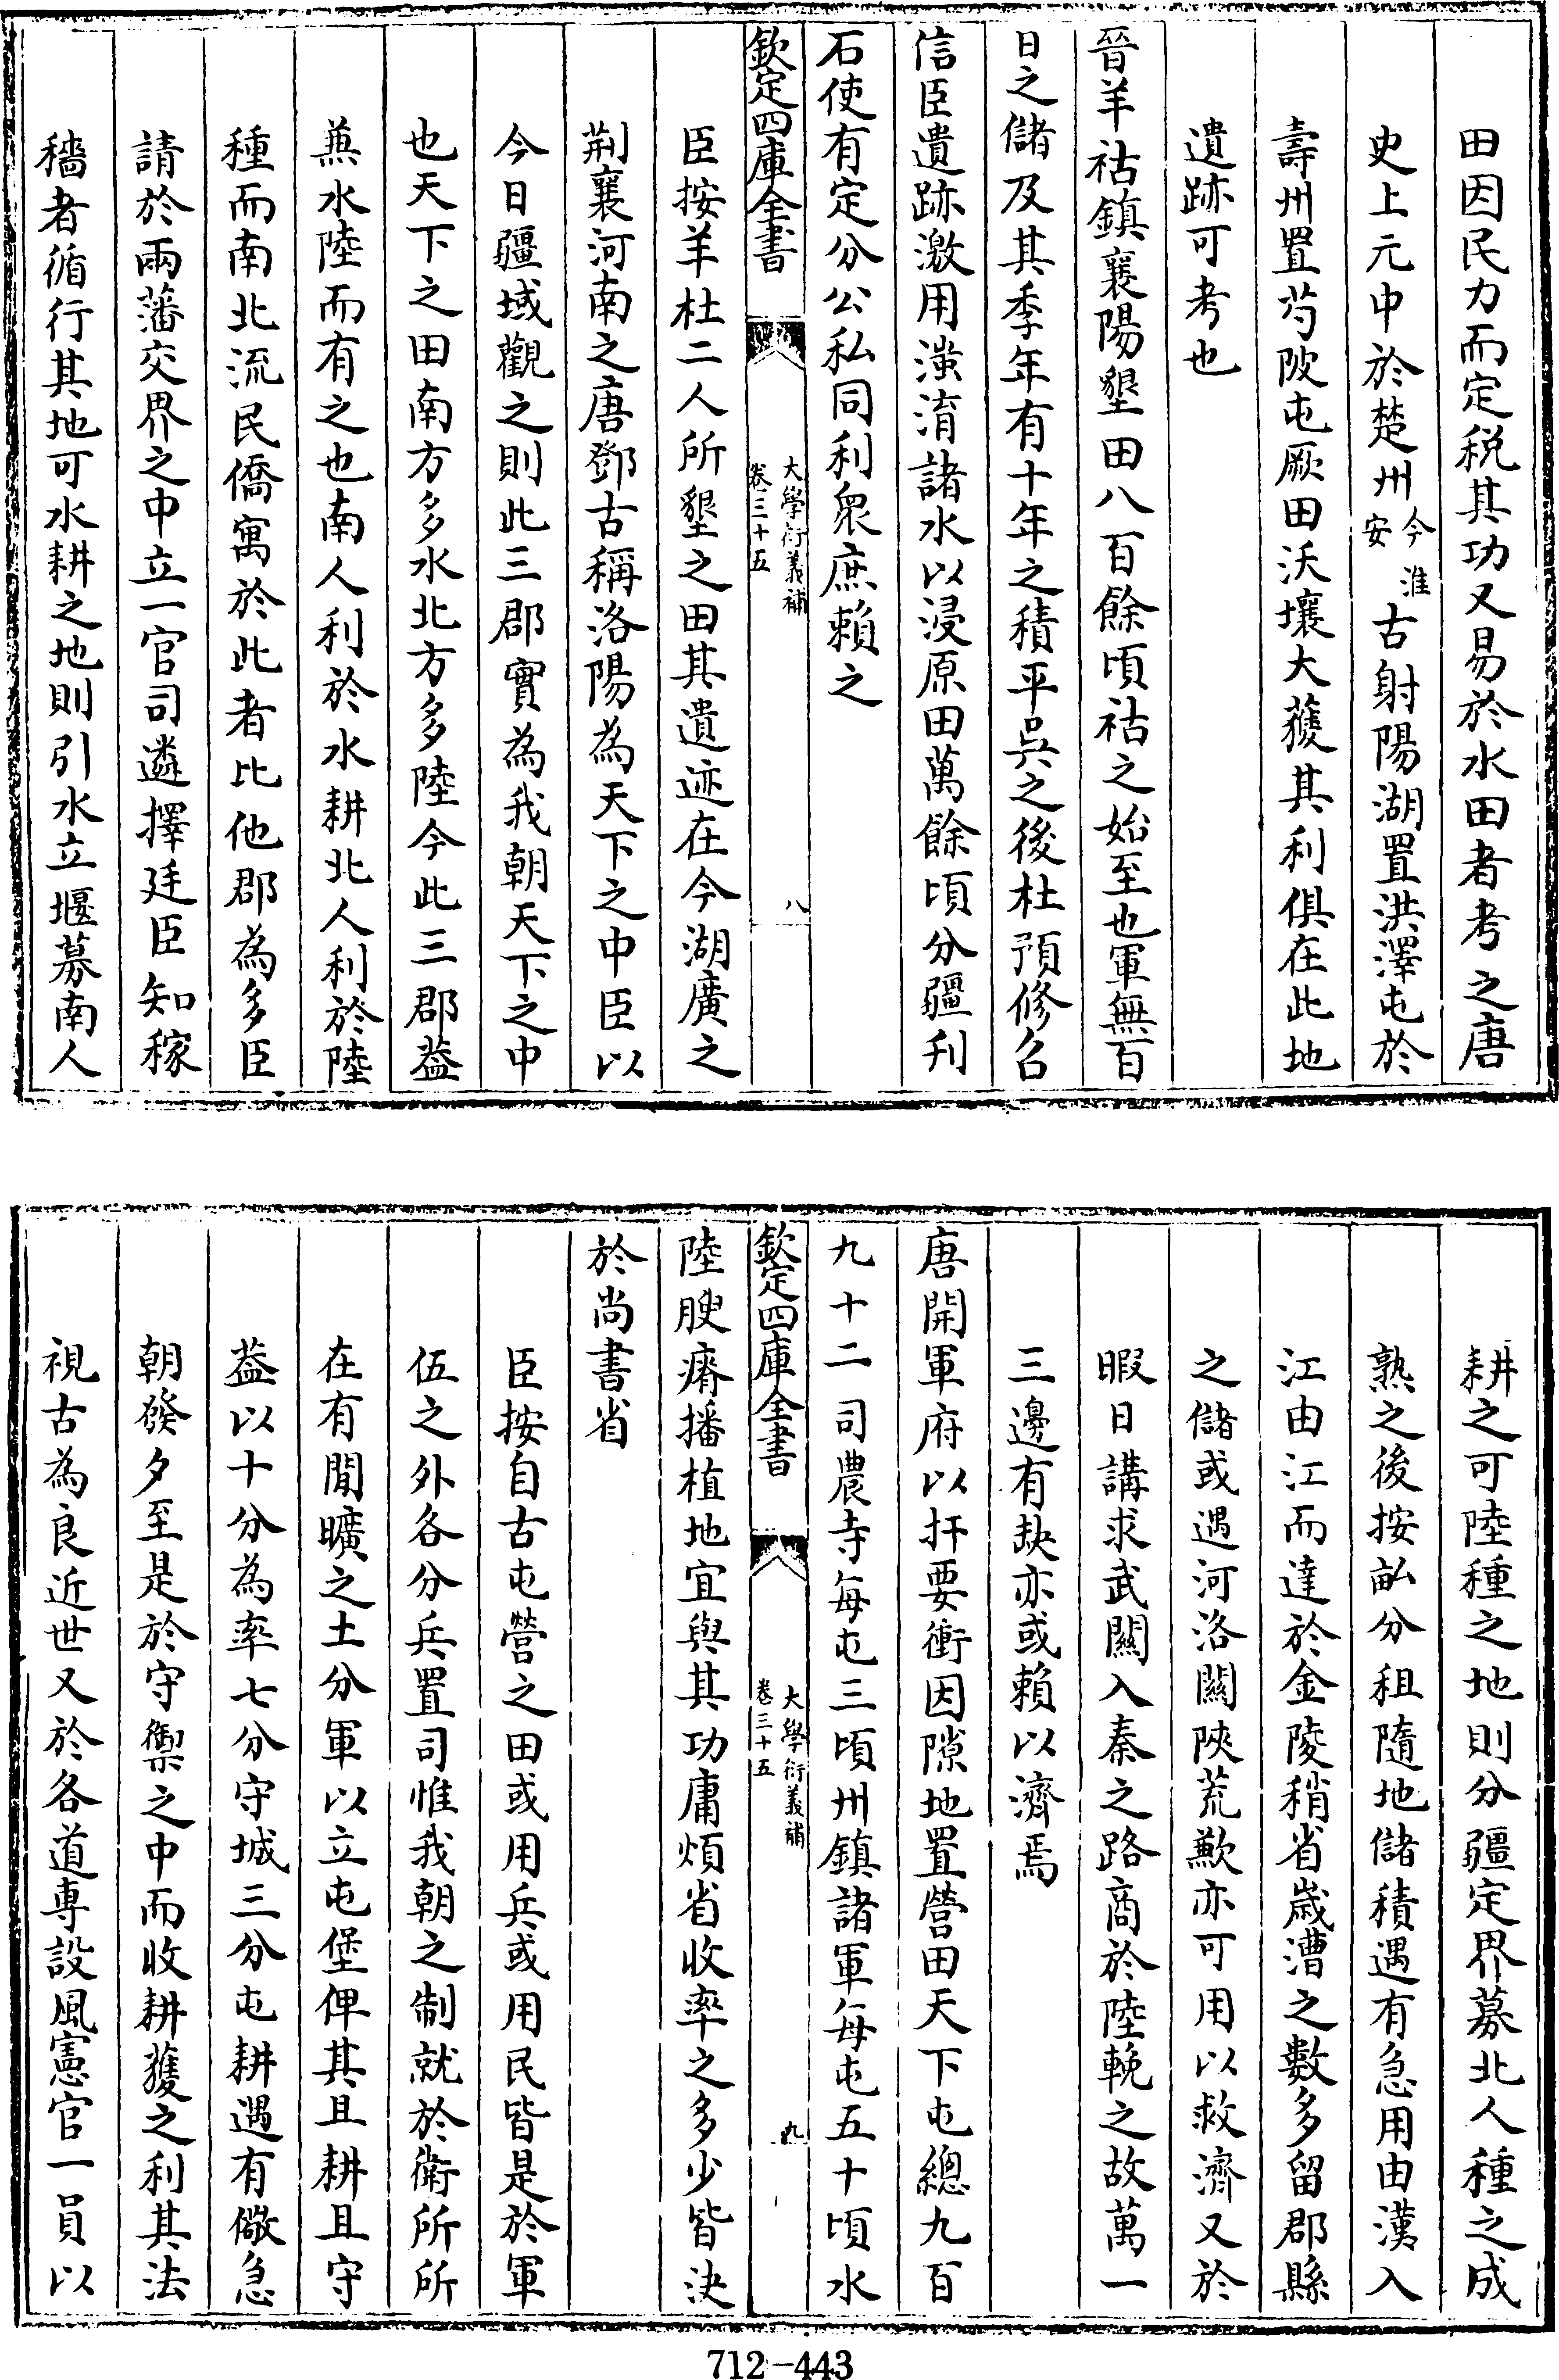 田因民力而定税其功又易於水田者考之唐
史上元中於楚州今淮安古射陽湖置洪澤屯於
壽州置芍陂屯厥田沃壤大蒦其利俱在此地
遺跡可考也
晉羊祜鎮襄陽墾田八百餘頃祜之始至也軍無百
日之儲及其季年有十年之積平吳之後杜預修召
信臣遺跡激用滍淯諸水以浸原田萬餘頃分疆刋
石使有定分公私同利衆庶賴之
欽定四庫全書
大學衍義補
卷三十五
八
臣按羊杜二人所墾之田其遺迹在今湖廣之
荆襄河南之唐鄧古稱洛陽為天下之中臣以
今日疆域觀之則此三郡實為我朝天下之中
也天下之田南方多水北方多陸今此三郡葢
兼水陸而有之也南人利於水耕北人利於陸
種而南北流民僑寓於此者比他郡為多臣
請於兩藩交界之中立一官司遴擇廷臣知稼
穡者循行其地可水耕之地則引水立堰募南人
耕之可陸種之地則分疆定界募北人種之成
熟之後按畝分租隨地儲積遇有急用由漢入
江由江而達於金陵稍省歲漕之數多留郡縣
之儲或遇河洛關陜荒歉亦可用以救濟又於
暇日講求武關入秦之路商於陸輓之故萬一
三邊有缺亦或賴以濟焉
唐開軍府以扞要衝因隙地置營田天下屯總九百
九十二司農寺每屯三頃州鎮諸軍每屯五十頃水
欽定四庫全書
大學衍義補
卷三十五
九
陸腴瘠播植地宜與其功庸煩省收率之多少皆決
於尚書省
臣按自古屯營之田或用兵或用民皆是於軍
伍之外各分兵置司惟我朝之制就於衛所所
在有閒曠之土分軍以立屯堡俾其且耕且守
葢以十分為率七分守城三分屯耕遇有儆急
朝發夕至是於守禦之中而收耕獲之利其法
視古為良近世又於各道專設風憲官一員以
712-443